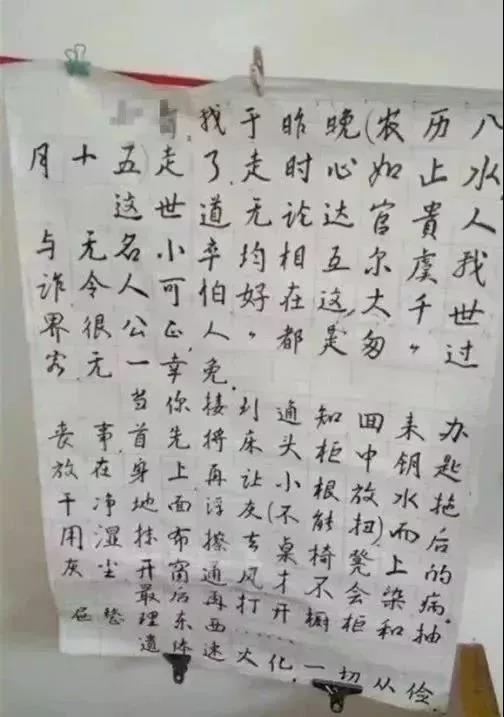 我于昨晚(农历八
月十五)走了,走时心如止水,
这世道无论达官贵人
与无名小卒均相互尔虞我
诈令人可怕。好在这大千世
界很公正,人“都是匆匆”过
客无一幸免.
当你接到通知回来办
丧事首先将床头柜中钥匙
放在身上再让小根放水拖
干净地面浮灰(不能扭)而后
用湿抹布擦去桌椅凳上的
灰尘开窗通风才不会染病.
最后再打开橱柜和抽
屉整理东西……
遗体速火化,一切从俭